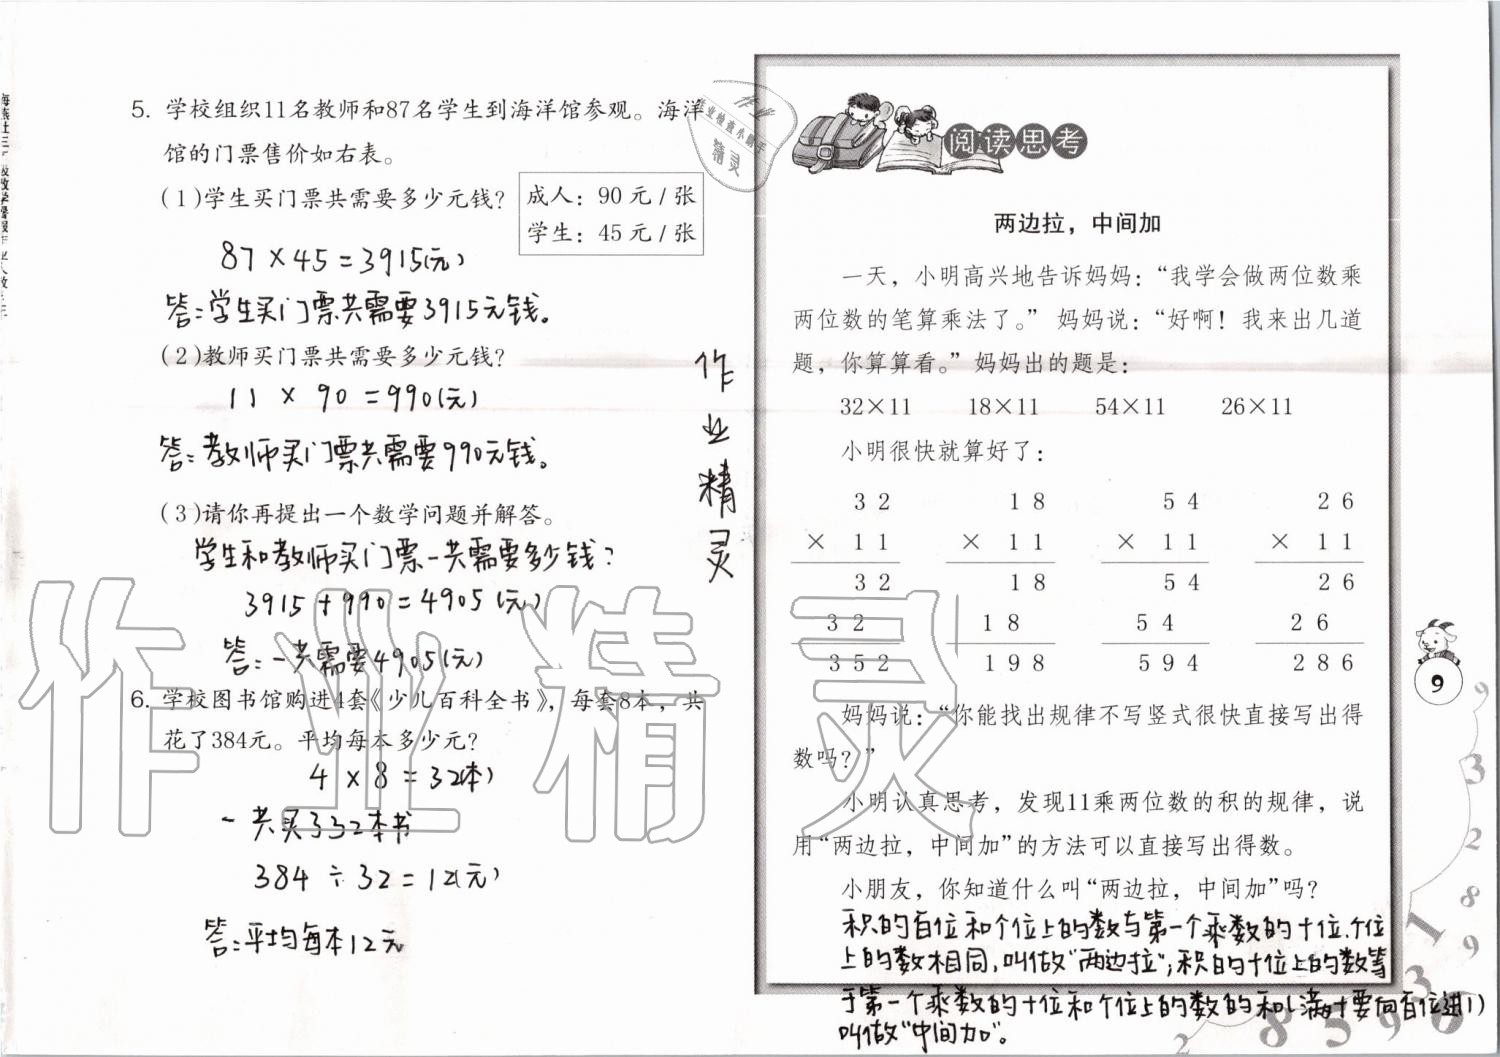 5. 学校组织11名教师和87名学生到海洋馆参观。海洋
馆的门票售价如右表。
(1)学生买门票共需要多少元钱?
成人：90 元 / 张
学生：45 元 / 张
87 × 45 = 3915(元)
答：学生买门票共需要3915元钱。
(2)教师买门票共需要多少元钱?
11 × 90 = 990(元)
答：教师买门票共需要990元钱。
(3)请你再提出一个数学问题并解答。
学生和教师买门票一共需要多少钱?
3915 + 990 = 4905(元)
答：一共需要4905(元)
6. 学校图书馆购进4套《少儿百科全书》，每套8本，共
花了384元。平均每本多少元?
4 × 8 = 32(本)
一共买了32本书
384 ÷ 32 = 12(元)
答：平均每本12元
作业精灵
作业精灵
作业
作业检查小助手
精灵
阅读思考
两边拉，中间加
一天，小明高兴地告诉妈妈：“我学会做两位数乘
两位数的笔算乘法了。” 妈妈说：“好啊！我来出几道
题，你算算看。” 妈妈出的题是：
32×11 18×11 54×11 26×11
小明很快就算好了：
3 2 1 8 5 4 2 6
× 1 1 × 1 1 × 1 1 × 1 1
3 2 1 8 5 4 2 6
3 2 1 8 5 4 2 6
3 5 2 1 9 8 5 9 4 2 8 6
妈妈说：“你能找出规律不写竖式很快直接写出得
数吗？”
小明认真思考，发现11乘两位数的积的规律，说
用“两边拉，中间加”的方法可以直接写出得数。
小朋友，你知道什么叫“两边拉，中间加”吗？
积的百位和个位上的数与第一个乘数的十位、个位
上的数相同，叫做“两边拉”；积的十位上的数等
于第一个乘数的十位和个位上的数的和(满十要向百位进1)
叫做“中间加”。
9
9
3
2
8
9
1
3
2 8 5 9 6